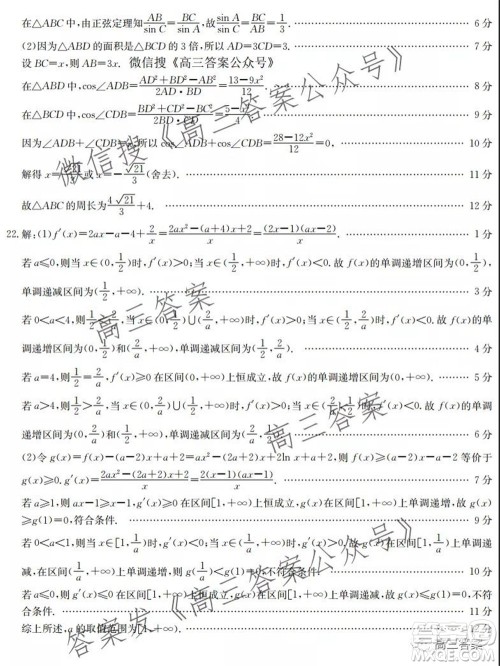 在△ABC 中，由正弦定理知 AB/sin C=BC/sin A，故 sin A/sin C=BC/AB=1/3. 6分
(2)因为△ABD 的面积是△BCD 的3倍，所以 AD=3CD=3. 7分
设 BC=x，则 AB=3x. 微信搜《高三答案公众号》
在△ABD 中，cos∠ADB=(AD²+BD²−AB²)/(2AD·BD)=(13−9x²)/12. 8分
在△BCD 中，cos∠CDB=(BD²+CD²−BC²)/(2BD·CD)= 9分
因为∠ADB+∠CDB=π，所以 cos∠ADB+cos∠CDB=(28−12x²)/12=0， 10分
解得 或 x=−√21/3(舍去). 11分
故△ABC 的周长为 4√21/3+4. 12分
22.解：(1)f′(x)=2ax−a−4+2/x=(2ax²−(a+4)x+2)/x=(2x−1)(ax−2)/x. 1分
若 a≤0，则当 x∈(0,1/2)时，f′(x)>0；当 x∈(1/2,+∞)时，f′(x)<0. 故 f(x)的单调递增区间为(0,1/2)，
单调递减区间为(1/2,+∞). 3分
若 0<a<4，则当 x∈(0,1/2)∪(2/a,+∞)时，f′(x)>0；当 x∈(1/2,2/a)时，f′(x)<0. 故 f(x)的单调
递增区间为(0,1/2)和(2/a,+∞)，单调递减区间为(1/2,2/a). 4分
若 a=4，则1/2=2/a，f′(x)≥0 在区间(0,+∞)上恒成立，故 f(x)的单调递增区间为(0,+∞). 5分
若 a>4，则1/2>2/a，当 x∈(0,2/a)∪(1/2,+∞)时，f′(x)>0；当 x∈(2/a,1/2)时，f′(x)<0. 故 f(x)的单调
递增区间为(0,2/a)和(1/2,+∞)，单调递减区间为(2/a,1/2). 6分
(2)令 g(x)=f(x)−(a−2)x−a+2=ax²−(2a+2)x+2ln x+a+2，则 f(x)≥(a−2)x+a−2 等价于
g(x)≥0，g′(x)=(2ax²−(2a+2)x+2)/x= 7分
若 a≥1，则 ax−1≥x−1，g′(x)≥0 在区间[1,+∞)上恒成立，故 g(x)在区间[1,+∞)上单调递增，故
g(x)≥g(1)=0，符合条件. 9分
若 0<a<1，则当 x∈[1,1/a)时，g′(x)<0；当 x∈(1/a,+∞)时，g′(x)>0. 故 g(x)在区间[1,1/a)上单调递
减，在区间(1/a,+∞)上单调递增，则 g(1/a)<g(1)=0，不符合条件. 10分
若 a≤0，则 g′(x)≤0 在区间[1,+∞)上恒成立，故 g(x)在区间[1,+∞)上单调递减，故 g(x)≤g(1)=0，不符
合条件. 11分
综上所述，a 的取值范围为[1,+∞).
微信搜《高三答案公众号》
高三答案
高三答案
答案发《高三答案公众号》
高三答案
MXQE.COM